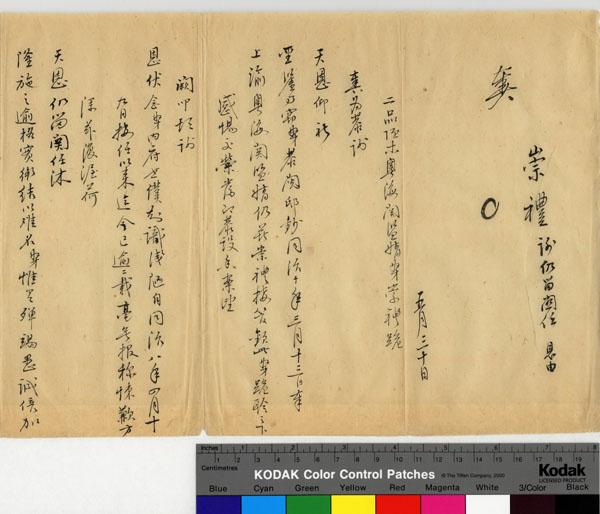 崇禮 謝仍留關任 恩由
奏
五月三十日
二品頂戴粵海關監督奴才崇禮跪
奏為恭謝
天恩仰祈
聖鑒事竊奴才恭閱邸鈔同治十年三月十三日奉
上諭粵海關監督仍著崇禮接管欽此奴才跪聆之下
感愧交縈當即恭設香案望
闕叩頭謝
恩伏念奴才內府世僕知識淺陋自同治八年四月十
九日接任以來迄今已逾二載毫無報稱悚歉方
深茲復渥荷
天恩仍留關任沐
隆施之逾格實銜結以難名奴才惟有殫竭愚誠倍加
Inches 1 2 3 4 5 6 7 8
Centimetres 1 2 3 4 5 6 7 8 9 10 11 12 13 14 15 16 17 18 19
KODAK Color Control Patches © The Tiffen Company, 2000 Kodak
LICENSED PRODUCT
Blue Cyan Green Yellow Red Magenta White 3/Color Black